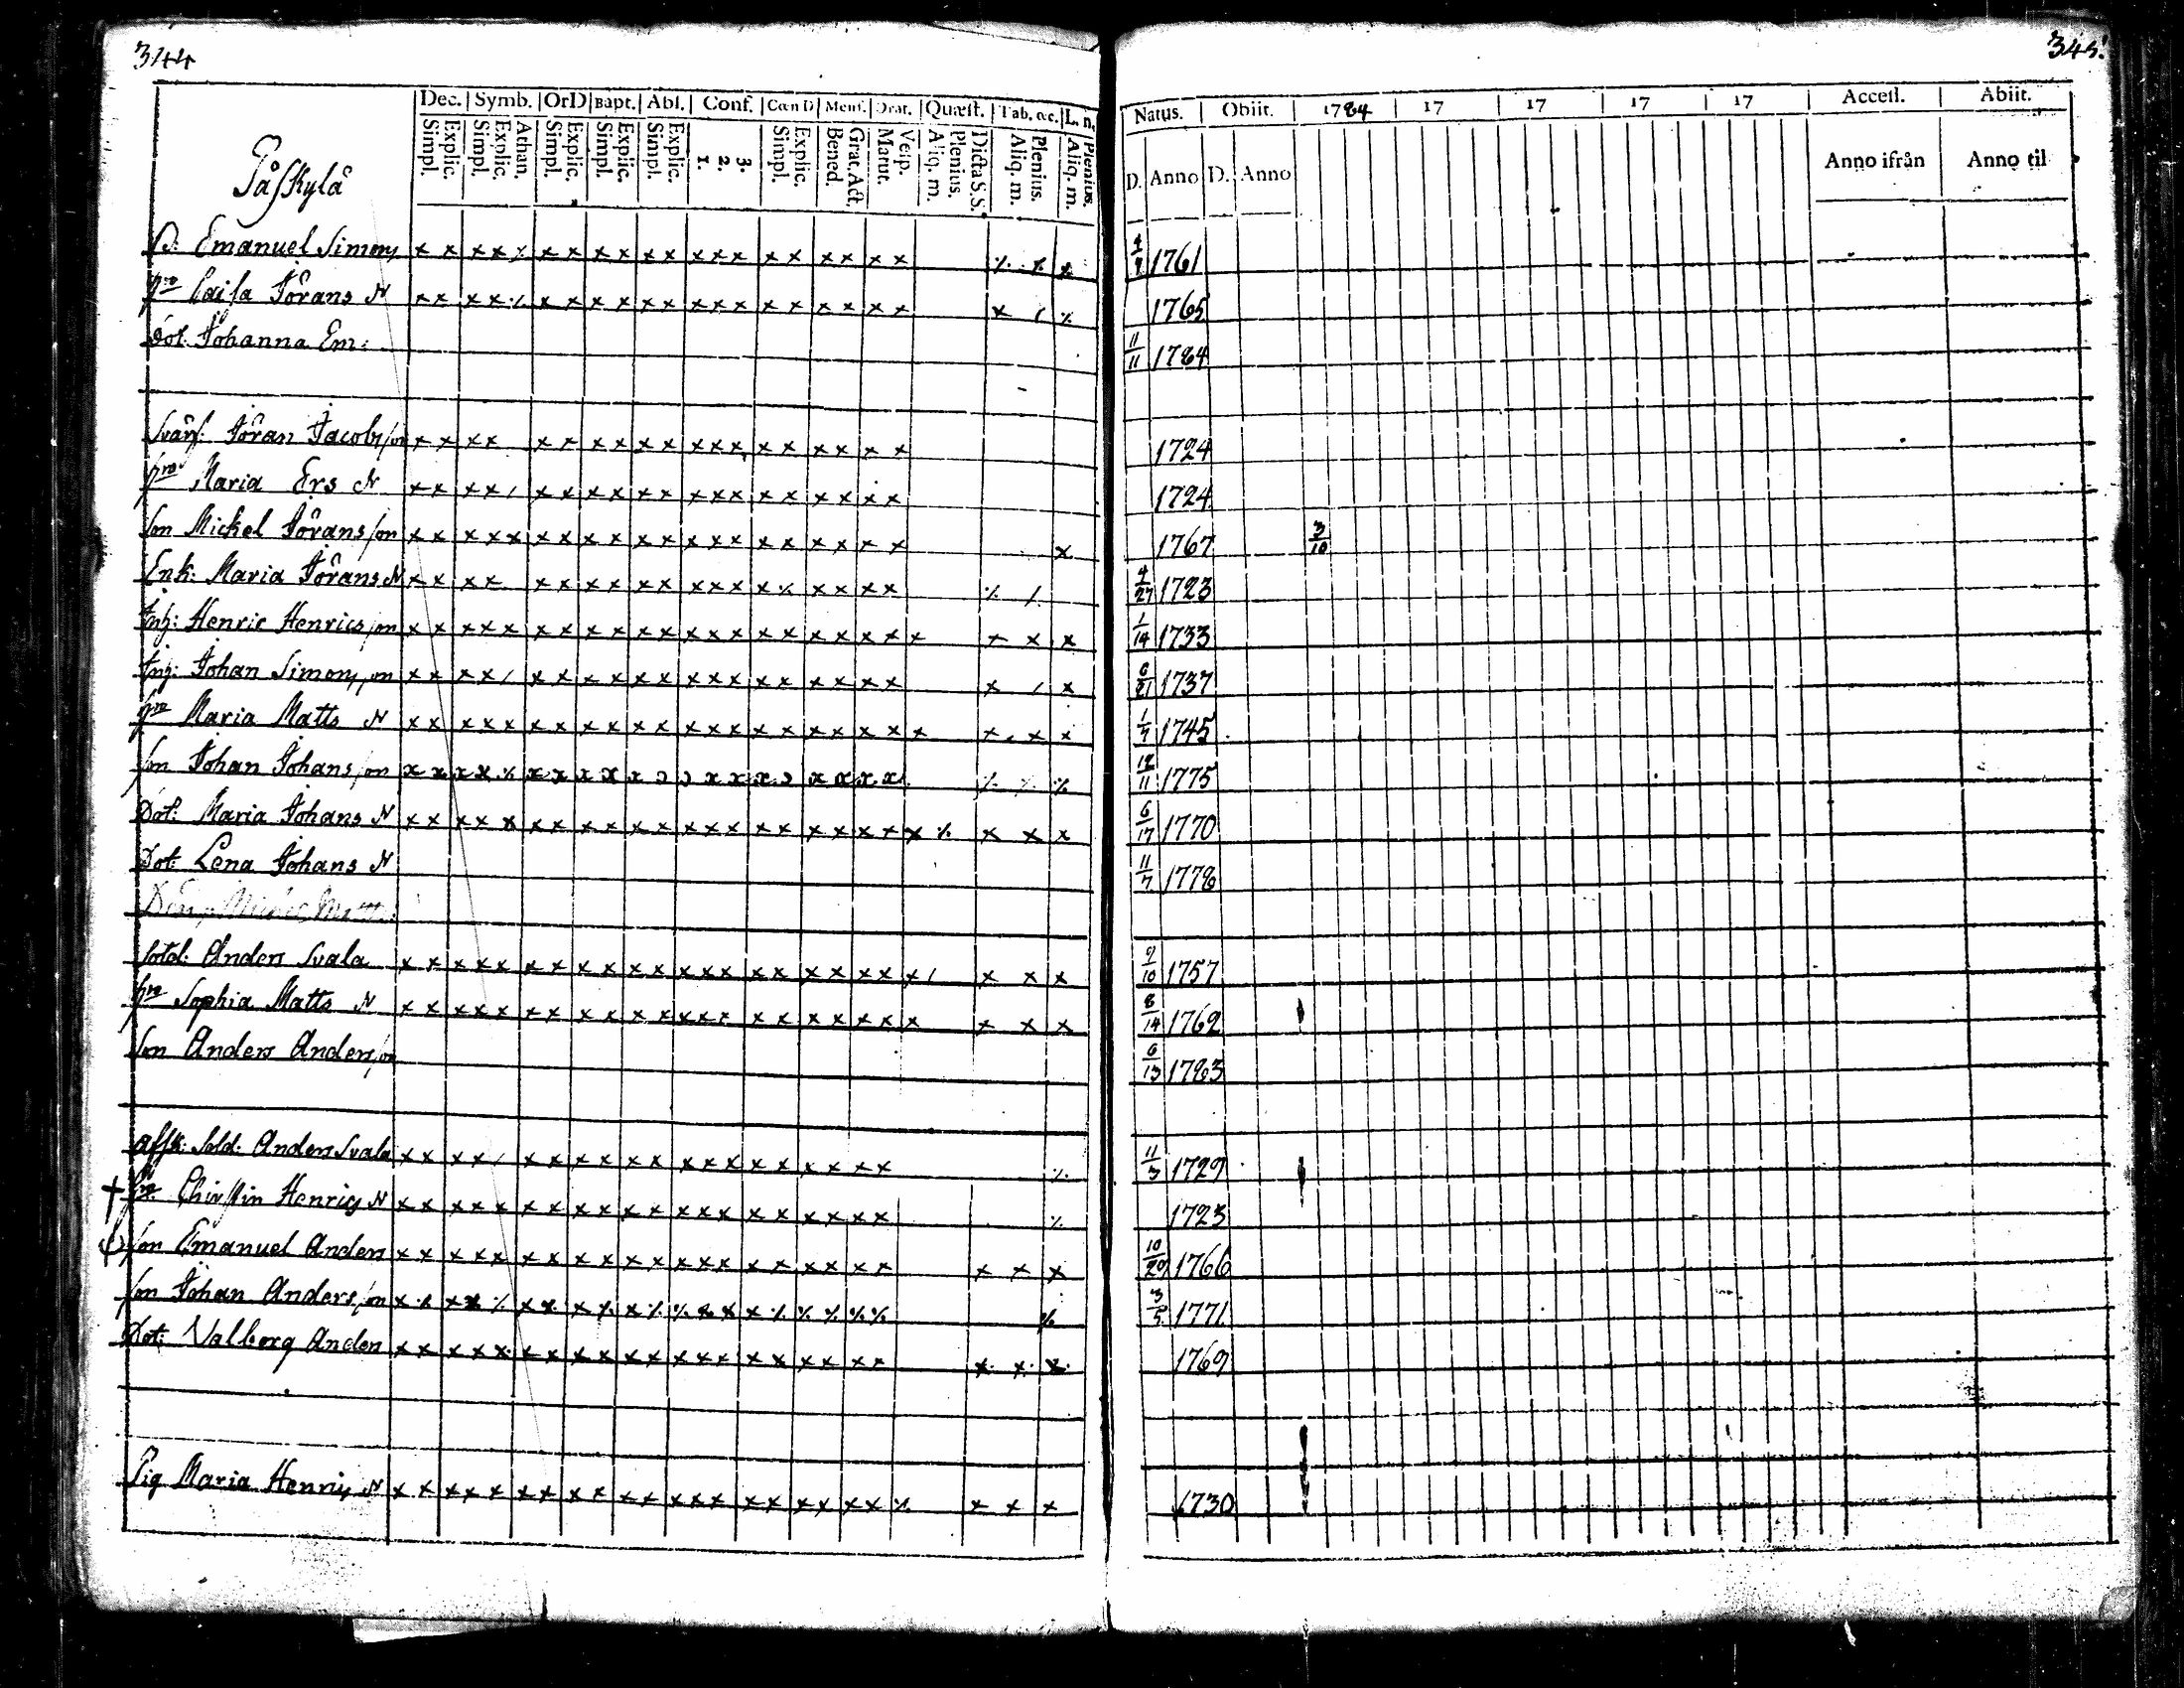 344
345.
Dec. Symb. OrD Bapt. Abs. Conf. Cœn D Mens. Orat. Quæst. Tab. œc. L. n.
Simpl. Explic. Simpl. Explic. Athan. Simpl. Explic. Simpl. Explic. Simpl. Explic. 1. 2. 3. Simpl. Explic. Bened. Grat. Act. Matut. Vesp. Aliq. m. Plenius. Dicta S. S. Aliq. m. Plenius. Aliq. m. Plenius.
Natus. Obiit. 1784 17 17 17 17 Access. Abiit.
D. Anno D. Anno Anno ifrån Anno til
Påskylä
Emanuel Simons x x x x ⁒ x x x x x x x x x x x x x x x ⁒ x x 4/7 1761
Caisa Jörans N x x x x ⁒ x x x x x x x x x x x x x x x x / ⁒ 1765
Dot. Johanna Em: 11/11 1784
Svärf: Jöran Jacobsson x x x x x x x x x x x x x x x x x x x 1724
Maria Ers N x x x x / x x x x x x x x x x x x x x x 1724
Son Mickel Jöransson x x x x x x x x x x x x x x x x x x x x x 1767 3/10
Enk: Maria Jörans N x x x x x x x x x x x x x x ⁒ x x x x ⁒ / 4/27 1723
Inh: Henric Henricsson x x x x x x x x x x x x x x x x x x x x x x x x 1/14 1733
Inh: Johan Simonsson x x x x / x x x x x x x x x x x x x x x x / x 6/21 1737
Maria Matts N x x x x x x x x x x x x x x x x x x x x x x x x 1/7 1745
Son Johan Johansson x x x x ⁒ x x x x x x x x x x x x ⁒ ⁒ ⁒ 12/11 1775
Dot: Maria Johans N x x x x x x x x x x x x x x x x x x x x x ⁒ x x x 6/17 1770
Dot: Lena Johans N 11/7 1778
Sold: Anders Svala x x x x x x x x x x x x x x x x x x x x x / x x x 9/10 1757
Sophia Matts N x x x x x x x x x x x x x x x x x x x x x x x x 8/14 1762
Son Anders Andersson 6/13 1783
Afsk: Sold: Anders Svala x x x x / x x x x x x x x x x x x x x x ⁒ 11/3 1729
† Chirstin Henrics N x x x x x x x x x x x x x x x x x x x x ⁒ 1723
Son Emanuel Anders x x x x x x x x x x x x x x x x x x x x x x x 10/29 1766
Son Johan Andersson x x x x ⁒ x x x ⁒ x ⁒ ⁒ x x x ⁒ ⁒ ⁒ ⁒ ⁒ ⁒ 1771
Dot: Valborg Anders x x x x x x x x x x x x x x x x x x x x x x x 1769
Pig Maria Henrics N x x x x x x x x x x x x x x x x x x x x ⁒ x x x 1730